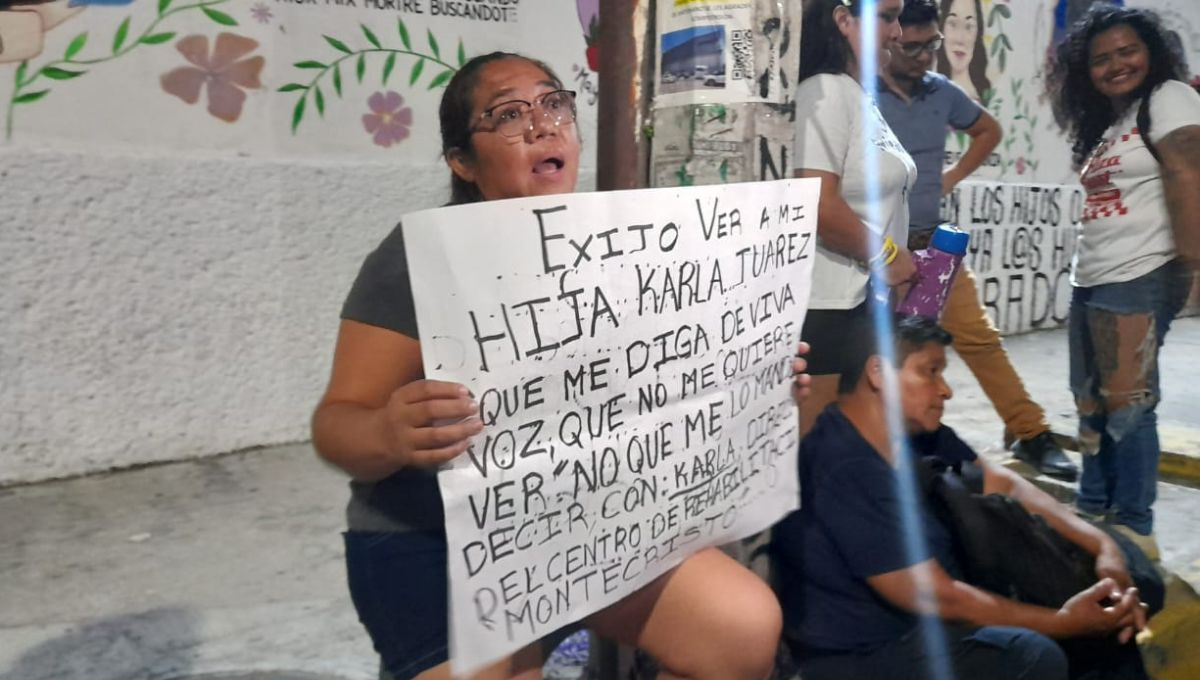 MORIRE BUSCANDOTE
EXIJO VER A MI
HIJA KARLA JUAREZ
QUE ME DIGA DE VIVA
VOZ, QUE NO ME QUIERE
VER "NO QUE ME LO MANDE
DECIR, CON: KARLA, DIREC
DEL CENTRO DE REHABILITACI
MONTECRISTO
EN LOS HIJOS
YA L@S